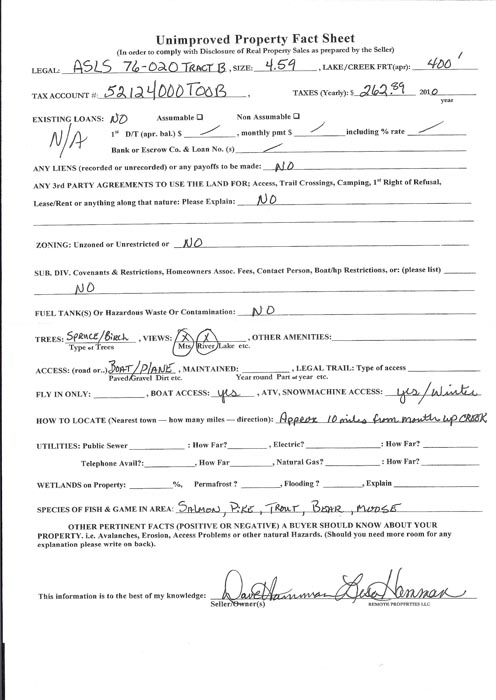 Unimproved Property Fact Sheet
(In order to comply with Disclosure of Real Property Sales as prepared by the Seller)
LEGAL: ASLS 76-020 TRACT B, SIZE: 4.59, LAKE/CREEK FRT(apr): 400'
TAX ACCOUNT #: 52124000T00B, TAXES (Yearly): $ 262.89 2010
year
EXISTING LOANS: NO Assumable ☐ Non Assumable ☐
N/A 1st D/T (apr. bal.) $ , monthly pmt $ including % rate
Bank or Escrow Co. & Loan No. (s)
ANY LIENS (recorded or unrecorded) or any payoffs to be made: NO
ANY 3rd PARTY AGREEMENTS TO USE THE LAND FOR; Access, Trail Crossings, Camping, 1st Right of Refusal,
Lease/Rent or anything along that nature: Please Explain: NO
ZONING: Unzoned or Unrestricted or NO
SUB. DIV. Covenants & Restrictions, Homeowners Assoc. Fees, Contact Person, Boat/hp Restrictions, or: (please list)
NO
FUEL TANK(S) Or Hazardous Waste Or Contamination: NO
TREES: SPRUCE/Birch, VIEWS: X X, OTHER AMENITIES:
Type of Trees Mts River/Lake etc.
ACCESS: (road or..) BOAT/PLANE, MAINTAINED: , LEGAL TRAIL: Type of access
Paved/Gravel Dirt etc. Year round Part of year etc.
FLY IN ONLY: , BOAT ACCESS: yes, ATV, SNOWMACHINE ACCESS: yes/Winter
HOW TO LOCATE (Nearest town — how many miles — direction): Approx 10 miles from mouth up CREEK
UTILITIES: Public Sewer : How Far? , Electric? : How Far?
Telephone Avail?: , How Far , Natural Gas? : How Far?
WETLANDS on Property: %, Permafrost ? , Flooding ? , Explain
SPECIES OF FISH & GAME IN AREA: SALMON, PIKE, TROUT, BEAR, MOOSE
OTHER PERTINENT FACTS (POSITIVE OR NEGATIVE) A BUYER SHOULD KNOW ABOUT YOUR
PROPERTY. i.e. Avalanches, Erosion, Access Problems or other natural Hazards. (Should you need more room for any
explanation please write on back).
This information is to the best of my knowledge: Dave Hanman Lisa Hanman
Seller/Owner(s) REMOTE PROPERTIES LLC